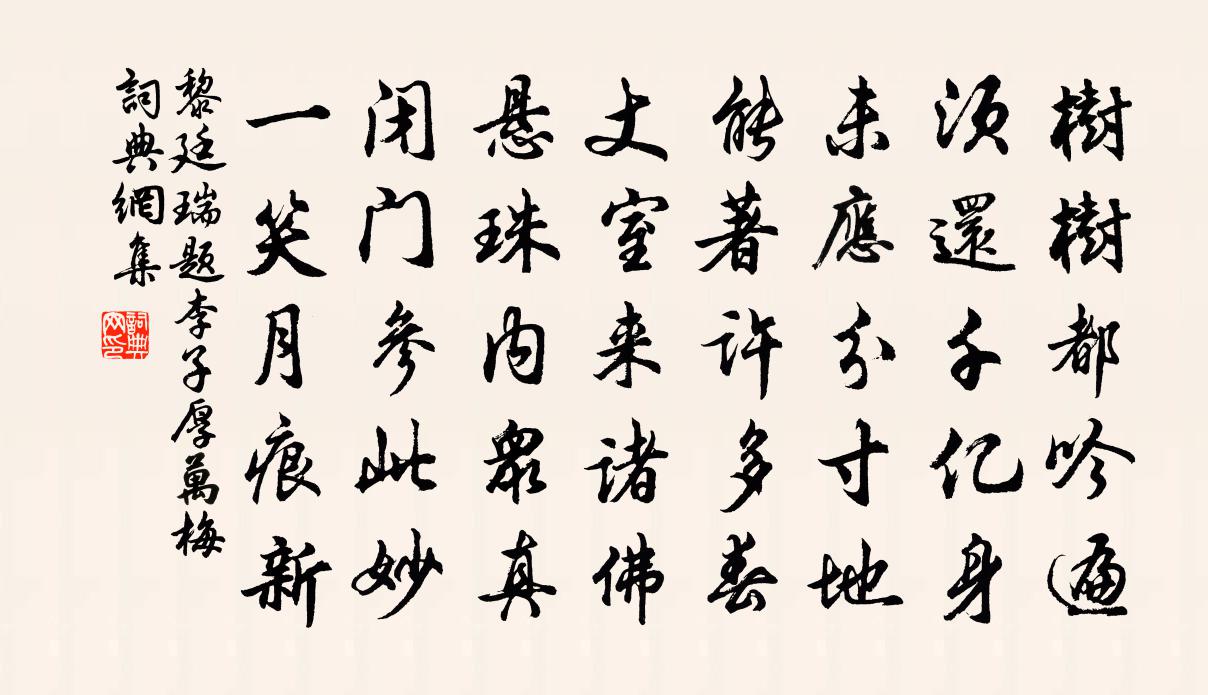 樹樹都吟遍
須還千亿身
未應分寸地
能著許多春
丈室来諸佛
悬珠内眾真
闭门參此妙
一笑月痕新
黎廷瑞题李子厚萬梅
詞典網集
詞典網印